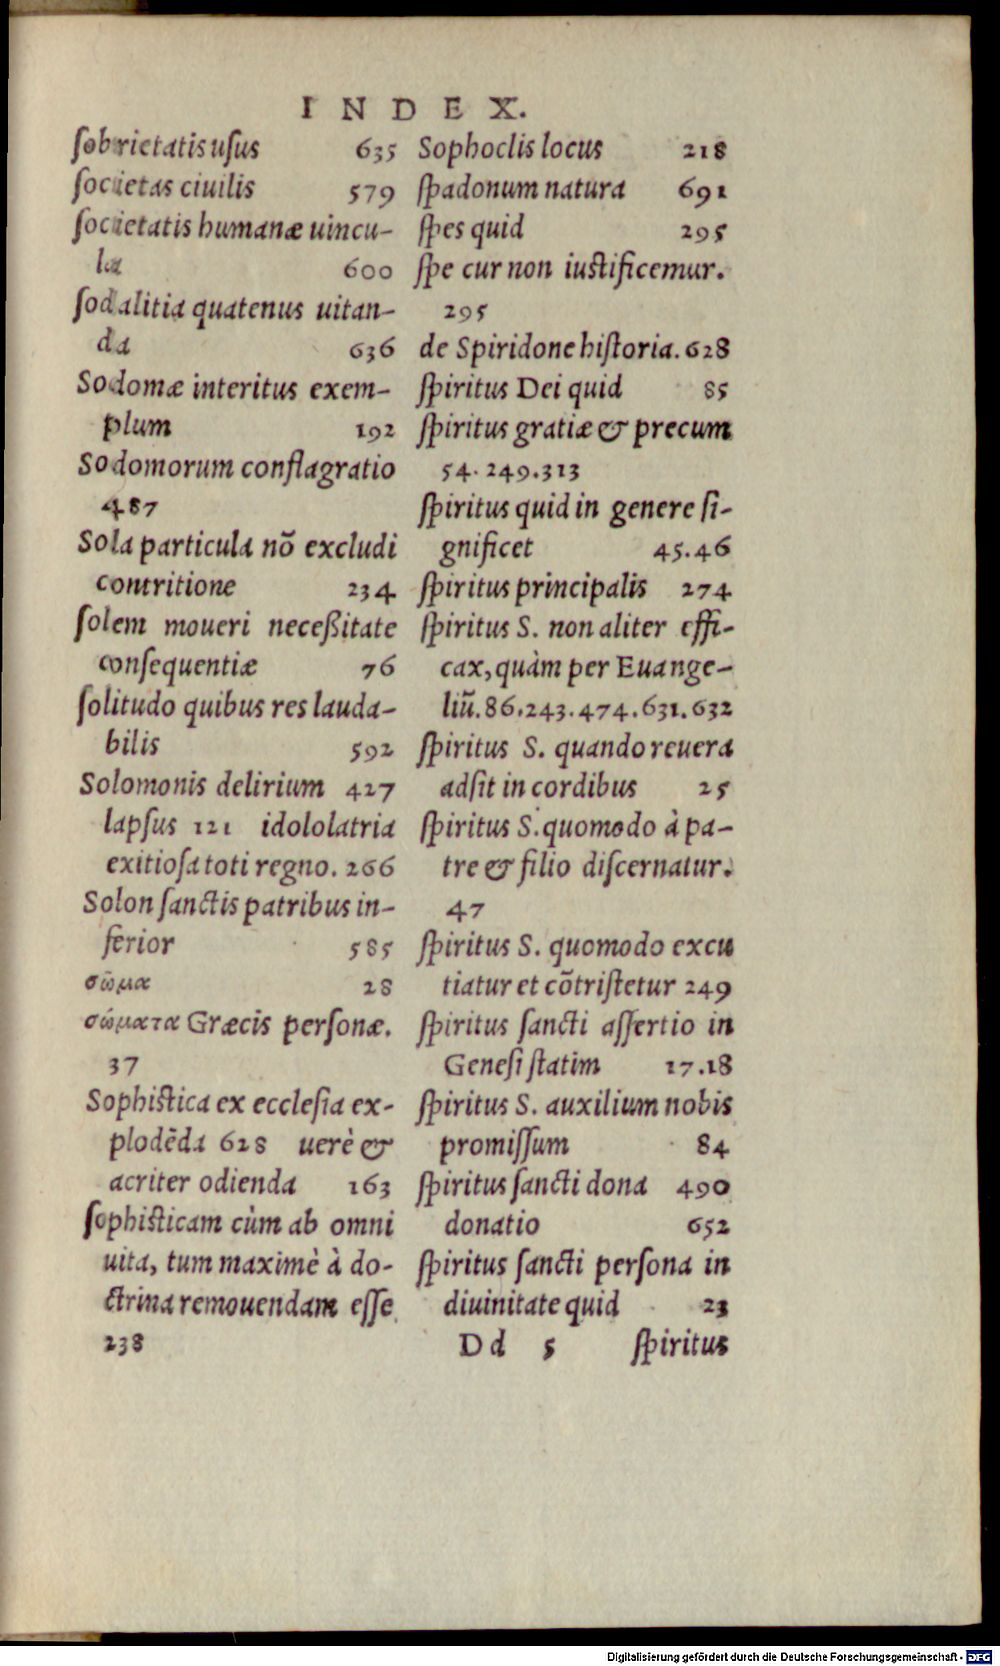 INDEX.
ſobrietatis uſus 635
ſocietas ciuilis 579
ſocietatis humanæ uincu-
la 600
ſodalitia quatenus uitan-
da 636
Sodomæ interitus exem-
plum 192
Sodomorum conflagratio
487
Sola particula nõ excludi
contritione 234
ſolem moueri neceßitate
conſequentiæ 76
ſolitudo quibus res lauda-
bilis 592
Solomonis delirium 427
lapſus 121 idololatria
exitioſa toti regno. 266
Solon ſanctis patribus in-
ferior 585
σῶμα 28
σώματα Græcis perſonæ.
37
Sophistica ex eccleſia ex-
plodēda 628 uerè &
acriter odienda 163
ſophisticam cùm ab omni
uita, tum maximè à do-
ctrina remouendam eſſe
238
Sophoclis locus 218
ſpadonum natura 691
ſpes quid 295
ſpe cur non iustificemur.
295
de Spiridone hiſtoria. 628
ſpiritus Dei quid 85
ſpiritus gratiæ & precum
54. 249. 313
ſpiritus quid in genere ſi-
gnificet 45.46
ſpiritus principalis 274
ſpiritus S. non aliter effi-
cax, quàm per Euange-
liũ. 86. 243. 474. 631. 632
ſpiritus S. quando reuera
adſit in cordibus 25
ſpiritus S. quomodo à pa-
tre & filio diſcernatur.
47
ſpiritus S. quomodo excu
tiatur et cõtriſtetur 249
ſpiritus ſancti aſſertio in
Geneſi ſtatim 17.18
ſpiritus S. auxilium nobis
promiſſum 84
ſpiritus ſancti dona 490
donatio 652
ſpiritus ſancti perſona in
diuinitate quid 23
Dd 5 ſpiritus
Digitalisierung gefördert durch die Deutsche Forschungsgemeinschaft - DFG